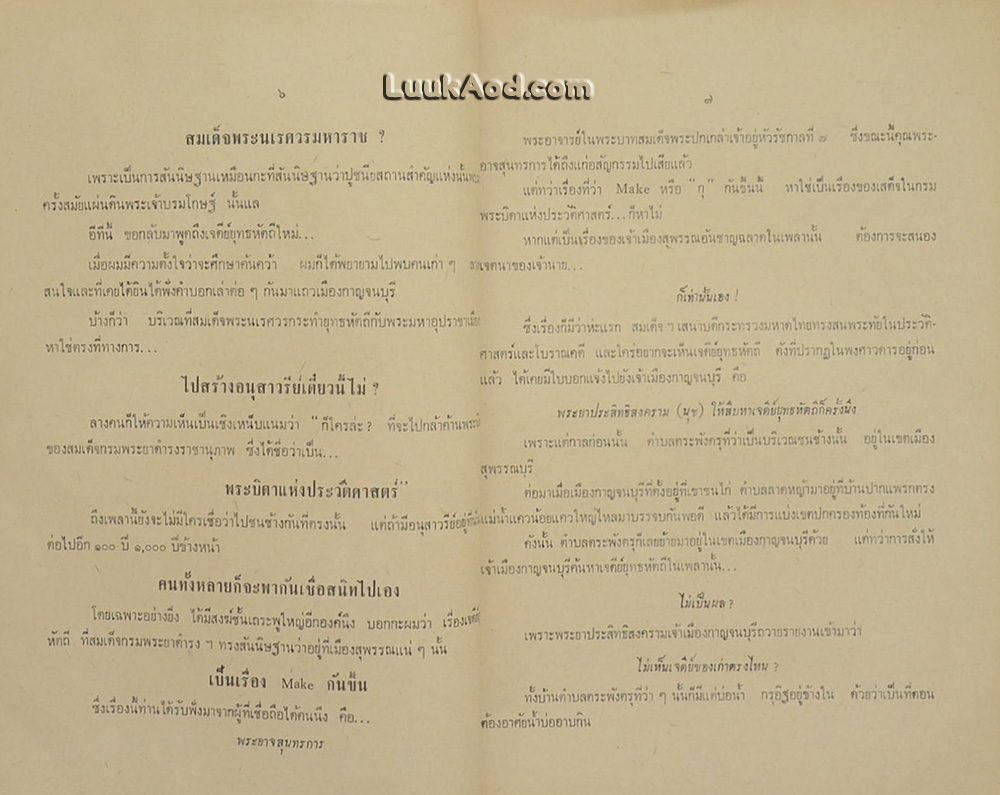 LuukAod.com
๖
สมเด็จพระนเรศวรมหาราช ?
เพราะเป็นการสันนิษฐานเหมือนกะที่สันนิษฐานว่าปูชนียสถานสำคัญแห่งนั้น
ครั้งสมัยแผ่นดินพระเจ้าบรมโกษฐ์ นั้นแล
อีทีนี้ ขอกลับมาพูดถึงเจดีย์ยุทธหัตถีใหม่...
เมื่อผมมีความตั้งใจว่าจะศึกษาค้นคว้า ผมก็ได้พยายามไปพบคนเก่า ๆ
สนใจและที่เคยได้ยินได้ฟังคำบอกเล่าต่อ ๆ กันมาแถวเมืองกาญจนบุรี
บ้างก็ว่า บริเวณที่สมเด็จพระนเรศวรกระทำยุทธหัตถีกับพระมหาอุปราชา
หาใช่ตรงที่ทางการ...
ไปสร้างอนุสาวรีย์เดี๋ยวนี้ไม่ ?
ลางคนก็ให้ความเห็นเป็นเชิงเหน็บแนมว่า "ก็ใครล่ะ ? ที่จะไปกล้าค้าน
ของสมเด็จกรมพระยาดำรงราชานุภาพ ซึ่งได้ชื่อว่าเป็น...
พระบิดาแห่งประวัติศาสตร์"
ถึงเพลานี้ยังจะไม่มีใครเชื่อว่าไปชนช้างกันที่ตรงนั้น แต่ถ้ามีอนุสาวรีย์อยู่
ต่อไปอีก ๑๐๐ ปี ๑,๐๐๐ ปีข้างหน้า
คนทั้งหลายก็จะพากันเชื่อสนิทไปเอง
โดยเฉพาะอย่างยิ่ง ได้มีสงฆ์ชั้นเถระผู้ใหญ่อีกองค์นึง บอกกะผมว่า เรื่อง
หัตถี ที่สมเด็จกรมพระยาดำรง ฯ ทรงสันนิษฐานว่าอยู่ที่เมืองสุพรรณแน่ ๆ นั้น
เป็นเรื่อง Make กันขึ้น
ซึ่งเรื่องนี้ท่านได้รับฟังมาจากผู้ที่เชื่อถือได้คนนึง คือ...
พระอาจสุนทรการ
๗
พระอาจารย์ในพระบาทสมเด็จพระปกเกล้าเจ้าอยู่หัวรัชกาลที่ ๗ ซึ่งขณะนี้คุณพระ-
อาจสุนทรการได้ถึงแก่อสัญกรรมไปเสียแล้ว
แต่ทว่าเรื่องที่ว่า Make หรือ "กุ" กันขึ้นนี้ หาใช่เป็นเรื่องของเสด็จในกรม
พระบิดาแห่งประวัติศาสตร์...ก็หาไม่
หากแต่เป็นเรื่องของเจ้าเมืองสุพรรณอันชาญฉลาดในเพลานั้น ต้องการจะสนอง
เจตนาของเจ้านาย...
ก็เท่านั้นเอง !
ซึ่งเรื่องก็มีว่าห่ะแรก สมเด็จ ฯ เสนาบดีกระทรวงมหาดไทยทรงสนพระทัยในประวัติ-
ศาสตร์และโบราณคดี และใคร่อยากจะเห็นเจดีย์ยุทธหัตถี ดังที่ปรากฏในพงศาวดารอยู่ก่อน
แล้ว ได้เคยมีใบบอกแจ้งไปยังเจ้าเมืองกาญจนบุรี คือ
พระยาประสิทธิสงคราม (นุช) ให้สืบหาเจดีย์ยุทธหัตถีก็ครั้งนึง
เพราะแต่กาลก่อนนั้น ตำบลตระพังครุที่ว่าเป็นบริเวณชนช้างนั้น อยู่ในเขตเมือง
สุพรรณบุรี
ต่อมาเมื่อเมืองกาญจนบุรีที่ตั้งอยู่ที่เขาชนไก่ ตำบลลาดหญ้ามาอยู่ที่บ้านปากแพรกตรง
แม่น้ำแควน้อยแควใหญ่ไหลมาบรรจบกันพอดี แล้วได้มีการแบ่งเขตปกครองท้องที่กันใหม่
ดังนั้น ตำบลตระพังครุก็เลยย้ายมาอยู่ในเขตเมืองกาญจนบุรีด้วย แต่ทว่าการสั่งให้
เจ้าเมืองกาญจนบุรีค้นหาเจดีย์ยุทธหัตถีในเพลานั้น...
ไม่เป็นผล ?
เพราะพระยาประสิทธิสงครามเจ้าเมืองกาญจนบุรีถวายรายงานเข้ามาว่า
ไม่เห็นเจดีย์ของเก่าตรงไหน ?
ทั้งบ้านตำบลตระพังครุที่ว่า ๆ นั้นก็มีแต่บ่อน้ำ กรุอิฐอยู่ข้างใน ด้วยว่าเป็นที่ดอน
ต้องอาศัยน้ำบ่ออาบกิน